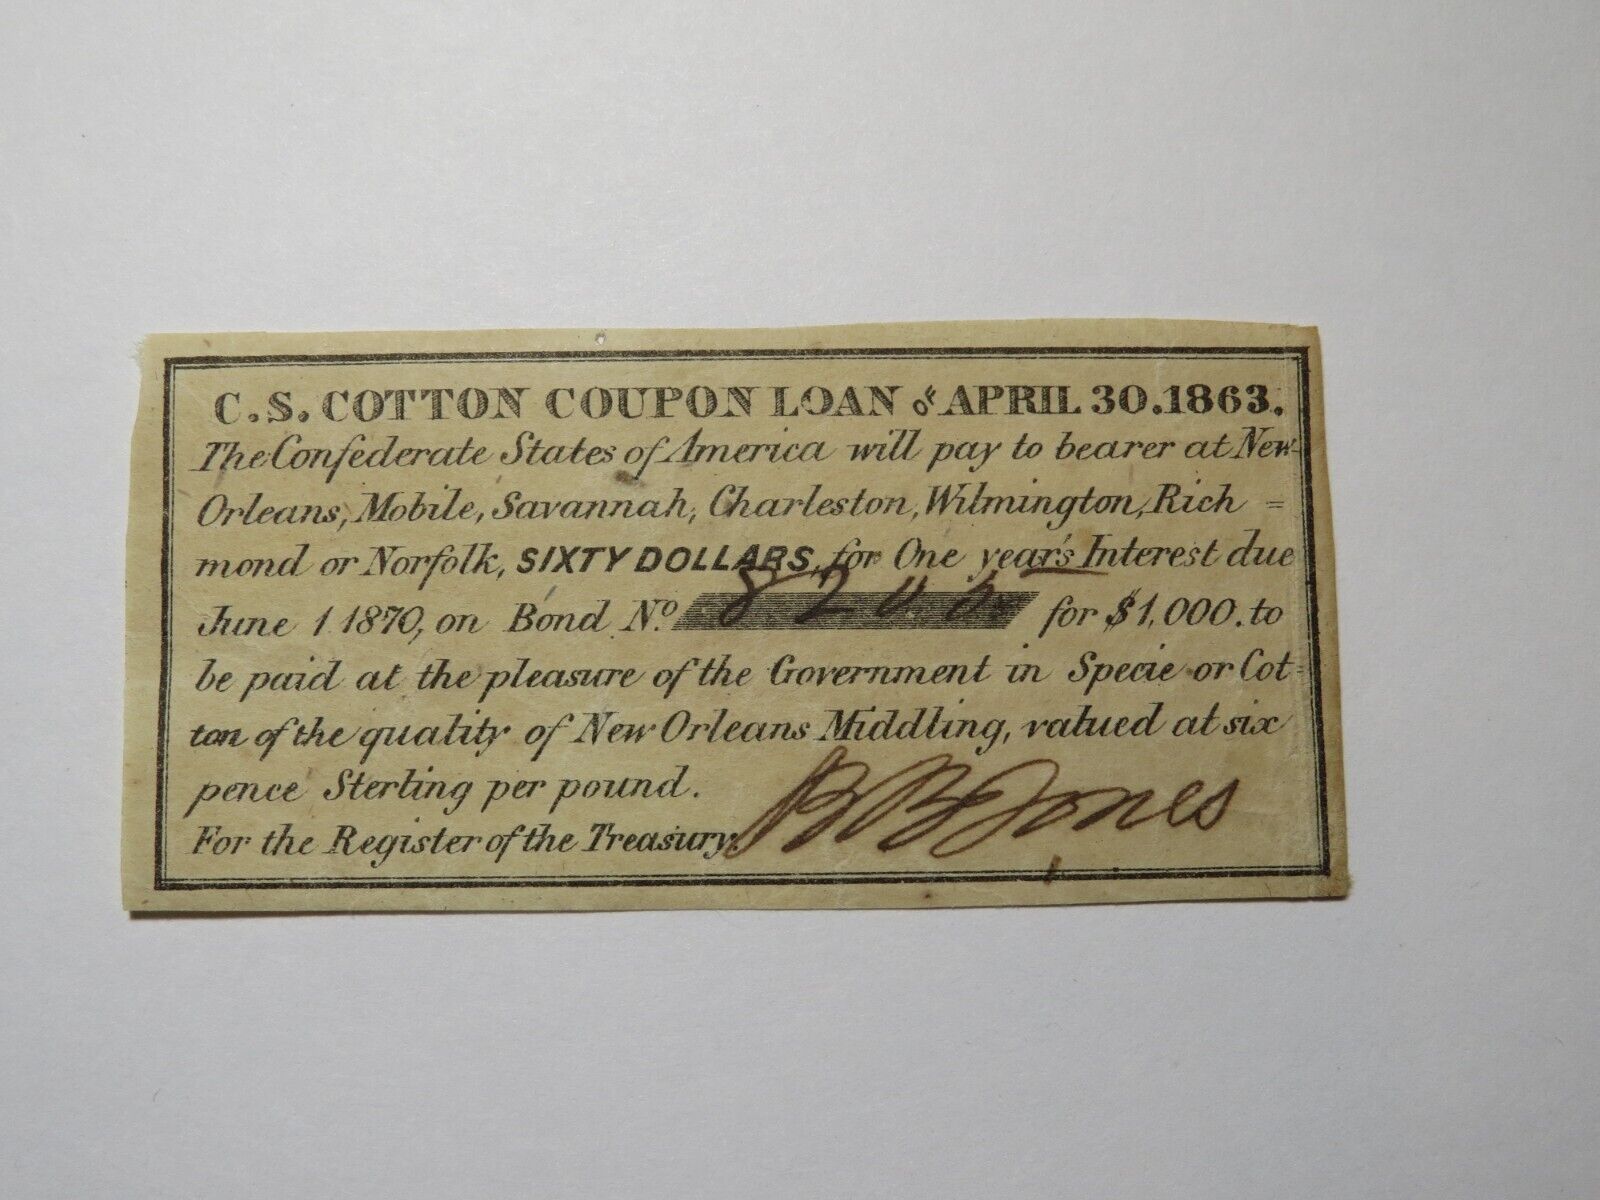 C.S. COTTON COUPON LOAN OF APRIL 30.1863.
The Confederate States of America will pay to bearer at New-
Orleans, Mobile, Savannah, Charleston, Wilmington, Rich=
mond or Norfolk, SIXTY DOLLARS, for One year's Interest due
June 1 1870, on Bond No. for $1,000. to
be paid at the pleasure of the Government in Specie or Cot=
ton of the quality of New Orleans Middling, valued at six
pence Sterling per pound.
For the Register of the Treasury. B B Jones